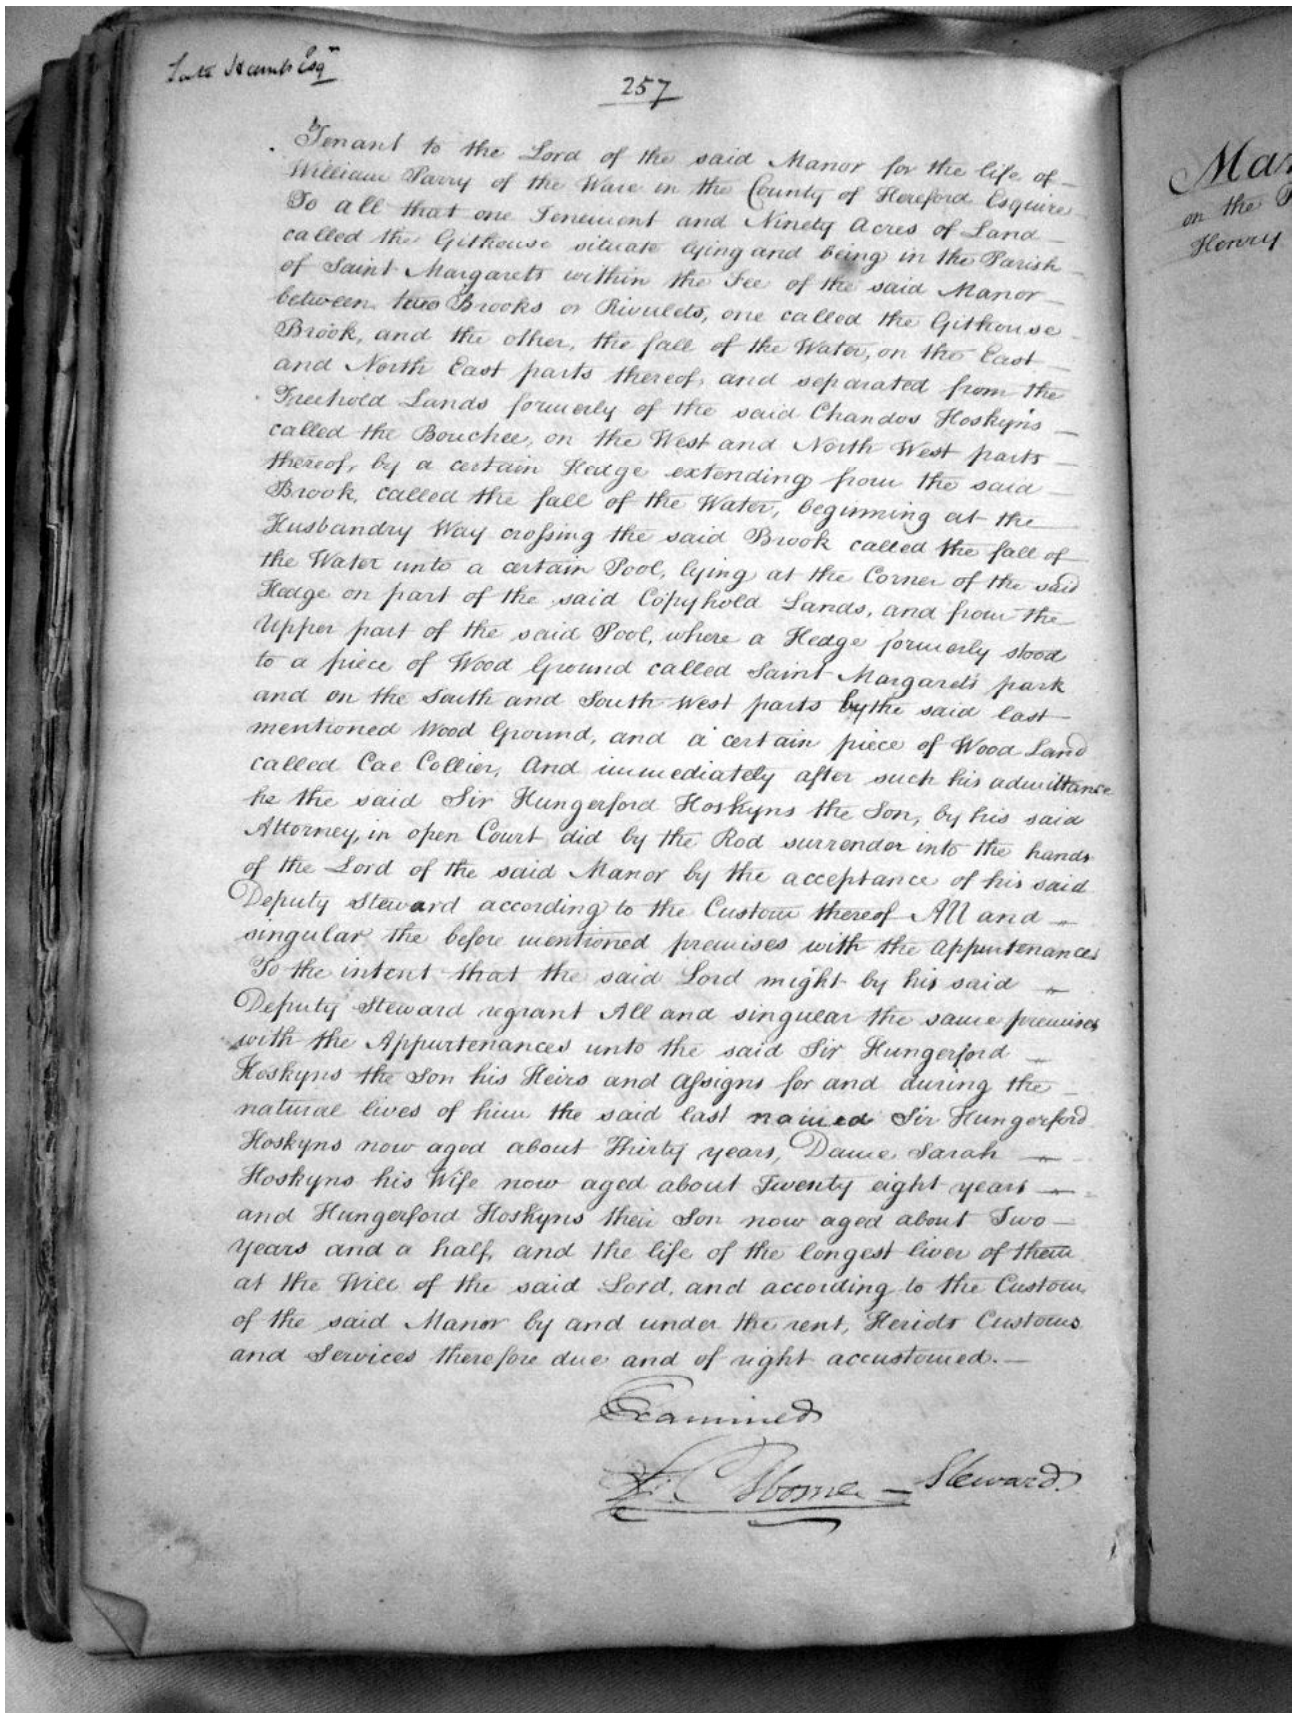 Esqr
257
Tenant to the Lord of the said Manor for the life of
William Parry of the Ware in the County of Hereford Esquire
To all that one Tenement and Ninety Acres of Land
called the Githouse situate lying and being in the Parish
of Saint Margarets within the Fee of the said Manor
between two Brooks or Rivulets, one called the Githouse
Brook, and the other, the fall of the Water, on the East
and North East parts thereof, and separated from the
Freehold Lands formerly of the said Chandos Hoskyns
called the Bouchee, on the West and North West parts
thereof, by a certain Hedge extending from the said
Brook, called the fall of the Water, beginning at the
Husbandry Way crossing the said Brook called the fall of
the Water unto a certain Pool, lying at the Corner of the said
Hedge on part of the said Copyhold Lands, and from the
Upper part of the said Pool, where a Hedge formerly stood
to a piece of Wood Ground called Saint Margarets park
and on the South and South West parts by the said last
mentioned Wood Ground, and a certain piece of Wood Land
called Cae Collier, And immediately after such his admittance
he the said Sir Hungerford Hoskyns the Son, by his said
Attorney, in open Court did by the Rod surrender into the hands
of the Lord of the said Manor by the acceptance of his said
Deputy Steward according to the Custom thereof All and
singular the before mentioned premises with the appurtenances
To the intent that the said Lord might by his said
Deputy Steward regrant All and singular the same premises
with the Appurtenances unto the said Sir Hungerford
Hoskyns the Son his Heirs and Assigns for and during the
natural lives of him the said last named Sir Hungerford
Hoskyns now aged about Thirty years, Dame Sarah
Hoskyns his Wife now aged about Twenty eight years
and Hungerford Hoskyns their Son now aged about Two
Years and a half, and the life of the longest liver of them
at the Will of the said Lord, and according to the Custom
of the said Manor by and under the rent, Heriots Customs
and Services therefore due and of right accustomed.
Examined
Steward
Man
on the
Henry